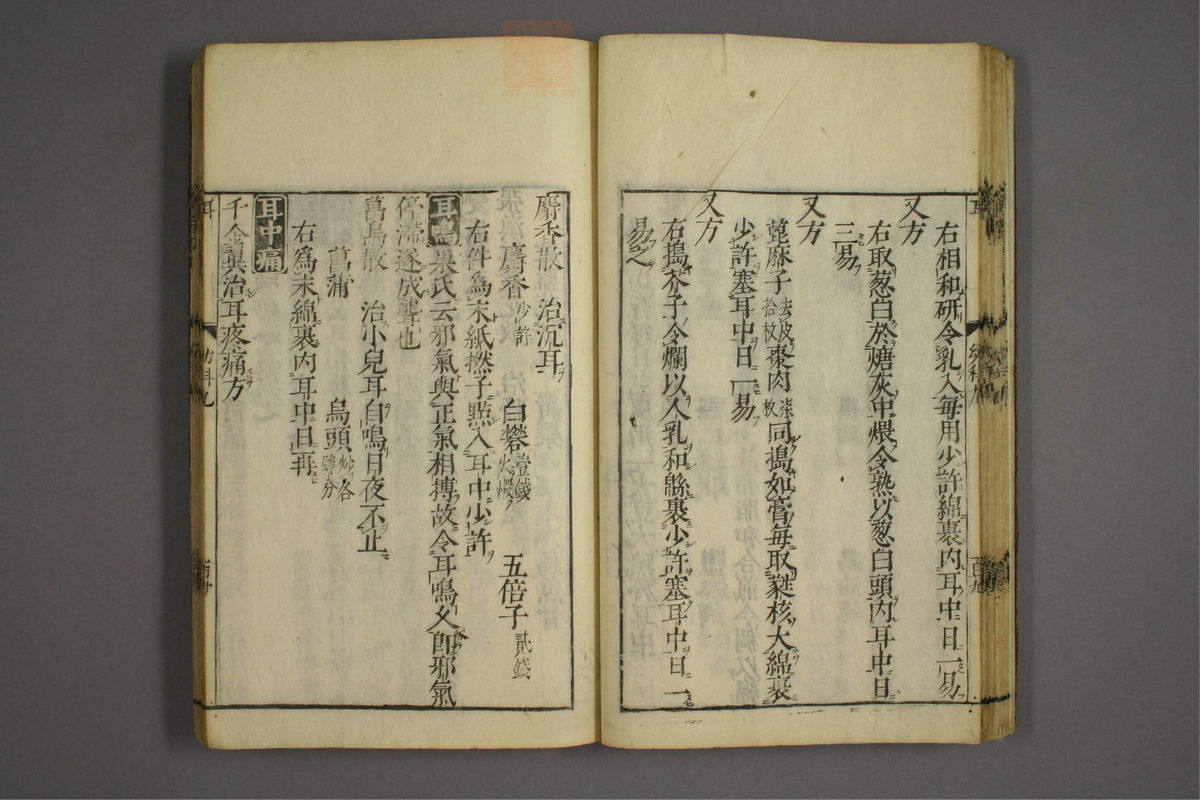 右相和研令乳入毎用少許綿裹内耳中日一易
又方
右取葱白於煻灰中煨令熟以葱白頭内耳中日
三易
又方
萆麻子去皮拾枚棗肉柒枚同搗如膏毎取棗核大綿裹
少許塞耳中日一易
又方
右搗芥子令爛以人乳和緜裹少許塞耳中日一
易之
幼科九
百九
麝香散 治沉耳
麝香少許 白礬壹錢火煅 五倍子貳錢
右件為末紙撚子㸃入耳中少許
耳鳴巢氏云邪氣與正氣相搏故令耳鳴乂即邪氣
停滯遂成聾也
菖烏散 治小兒耳自鳴日夜不止
菖蒲 烏頭炒各肆分
右為末綿裹内耳中日再
耳中痛
千金翼治耳疼痛方
耳
幼科九